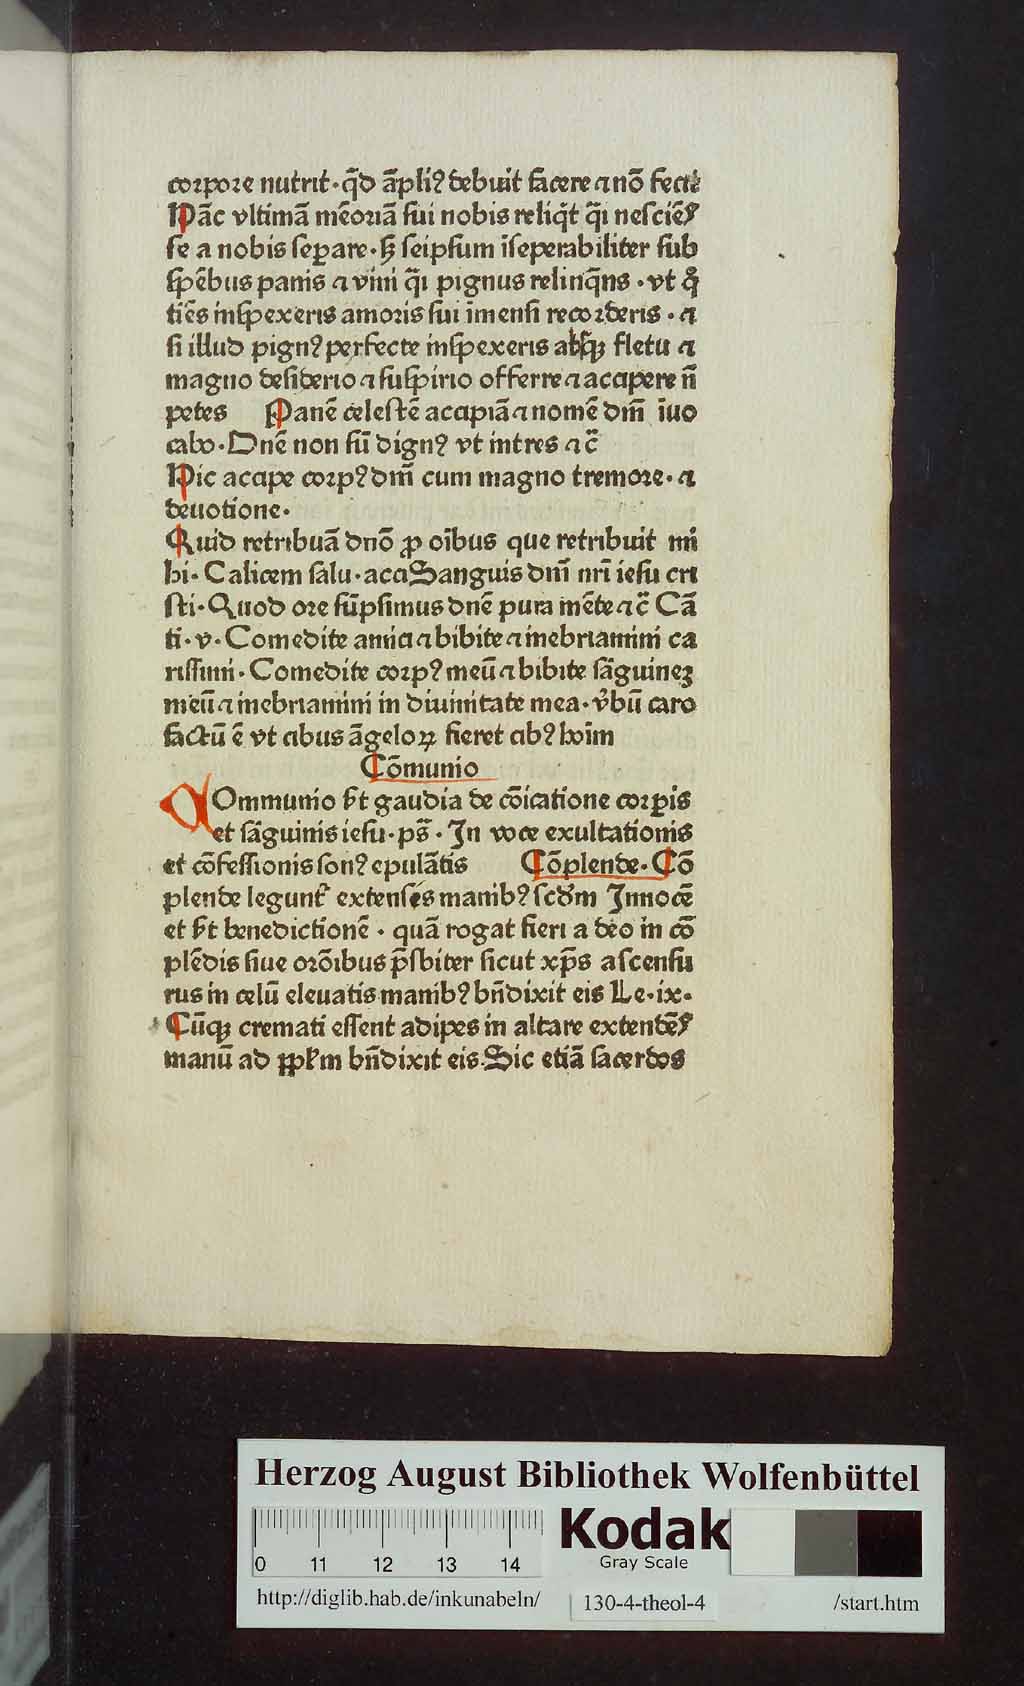 corpore nutrit·q̄d āpliꝰ debuit facere ⁊ nō fecit
Hāc vltimā mēoriā sui nobis reliq̄t q̄i nesciēs
se a nobis seꝑare·sꝫ seipsum īseperabiliter sub
spēbus panis ⁊ vini q̄i pignus relinq̄ns·vt q̊
tiēs inspexeris amoris sui īmensi recorderis·⁊
si illud pignꝰ perfecte inspexeris absqꝫ fletu ⁊
magno desiderio ⁊ suspirio offerre ⁊ accipere n̄
petes Panē celestē accipiā ⁊ nomē dn̄i īuo
cabo·Dn̄e non sū dignꝰ vt intres ⁊ c̄
Hic accipe corpꝰ dn̄i cum magno tremore·⁊
deuotione·
Quid retribuā dn̄o ꝓ oībus que retribuit mi
hi·Calicem salu·acci Sanguis dn̄i nr̄i iesu cri
sti·Quod ore sūpsimus dn̄e pura mēte ⁊ c̄ Cā
ti·v·Comedite amici ⁊ bibite ⁊ inebriamini ca
rissimi·Comedite corpꝰ meū ⁊ bibite sāguineꝫ
meū ⁊ inebriamini in diuinitate mea·v̄bū caro
factū ē vt cibus āgeloꝝ fieret cibꝰ hoīm
Cōmunio
COmmunio fit gaudia de cōicatione corꝑis
et sāguinis iesu·ps̄·In voce exultationis
et cōfessionis sonꝰ epulātis Cōplende·Cō
plende legunt᷑ extensis manibꝰ scd̄m Innocē
et fit benedictionē·quā rogat fieri a deo in cō
plēdis siue orōibus p̄sbiter sicut xp̄s ascensu
rus in celū eleuatis manibꝰ bn̄dixit eis Le·ix·
Cūqꝫ cremati essent adipes in altare extendēs
manū ad pplm̄ bn̄dixit eis·Sic etiā sacerdos
Herzog August Bibliothek Wolfenbüttel
0 11 12 13 14
Kodak
Gray Scale
http://diglib.hab.de/inkunabeln/ 130-4-theol-4 /start.htm